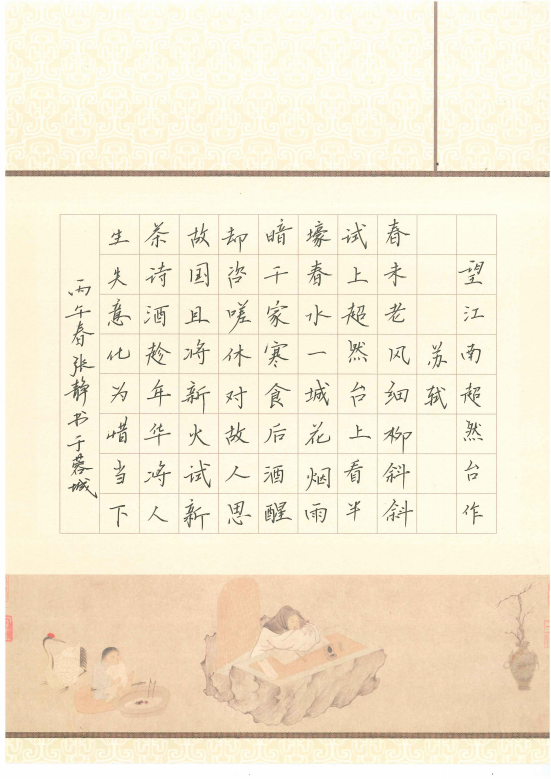 望江南超然台作
苏轼
春未老风细柳斜斜
试上超然台上看半
壕春水一城花烟雨
暗千家寒食后酒醒
却咨嗟休对故人思
故国且将新火试新
茶诗酒趁年华将人
生失意化为惜当下
丙午春张静书于蓉城